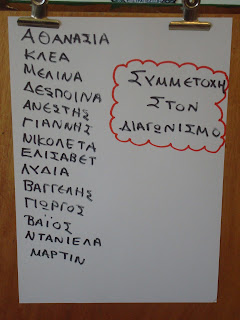 ΑΘΑΝΑΣΙΑ
ΚΛΕΑ
ΜΕΛΙΝΑ
ΔΕΣΠΟΙΝΑ
ΑΝΕΣΤΗΣ
ΓΙΑΝΝΗΣ
ΝΙΚΟΛΕΤΑ
ΕΛΙΣΑΒΕΤ
ΛΥΔΙΑ
ΒΑΓΓΕΛΗΣ
ΓΙΩΡΓΟΣ
ΒΑΪΟΣ
ΝΤΑΝΙΕΛΑ
ΜΑΡΤΙΝ
ΣΥΜΜΕΤΟΧΗ
ΣΤΟΝ
ΔΙΑΓΩΝΙΣΜΟ